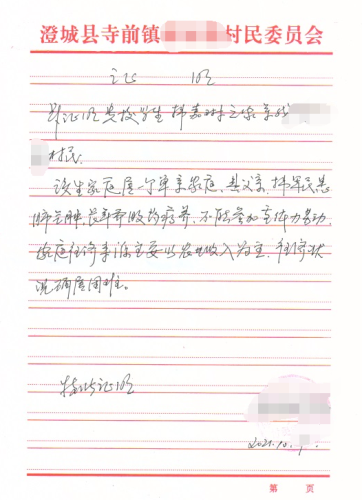 澄城县寺前镇 村民委员会
证 明
兹证明贵校学生韩嘉 之家系我
村民。
该生家庭属一个单亲家庭,其父亲韩军民患
肺气肿,长年吃药疗养,不能参加重体力劳动,
家庭经济来源主要以农业收入为主,经济状
况确属困难。
特此证明
2021.10.
第 页